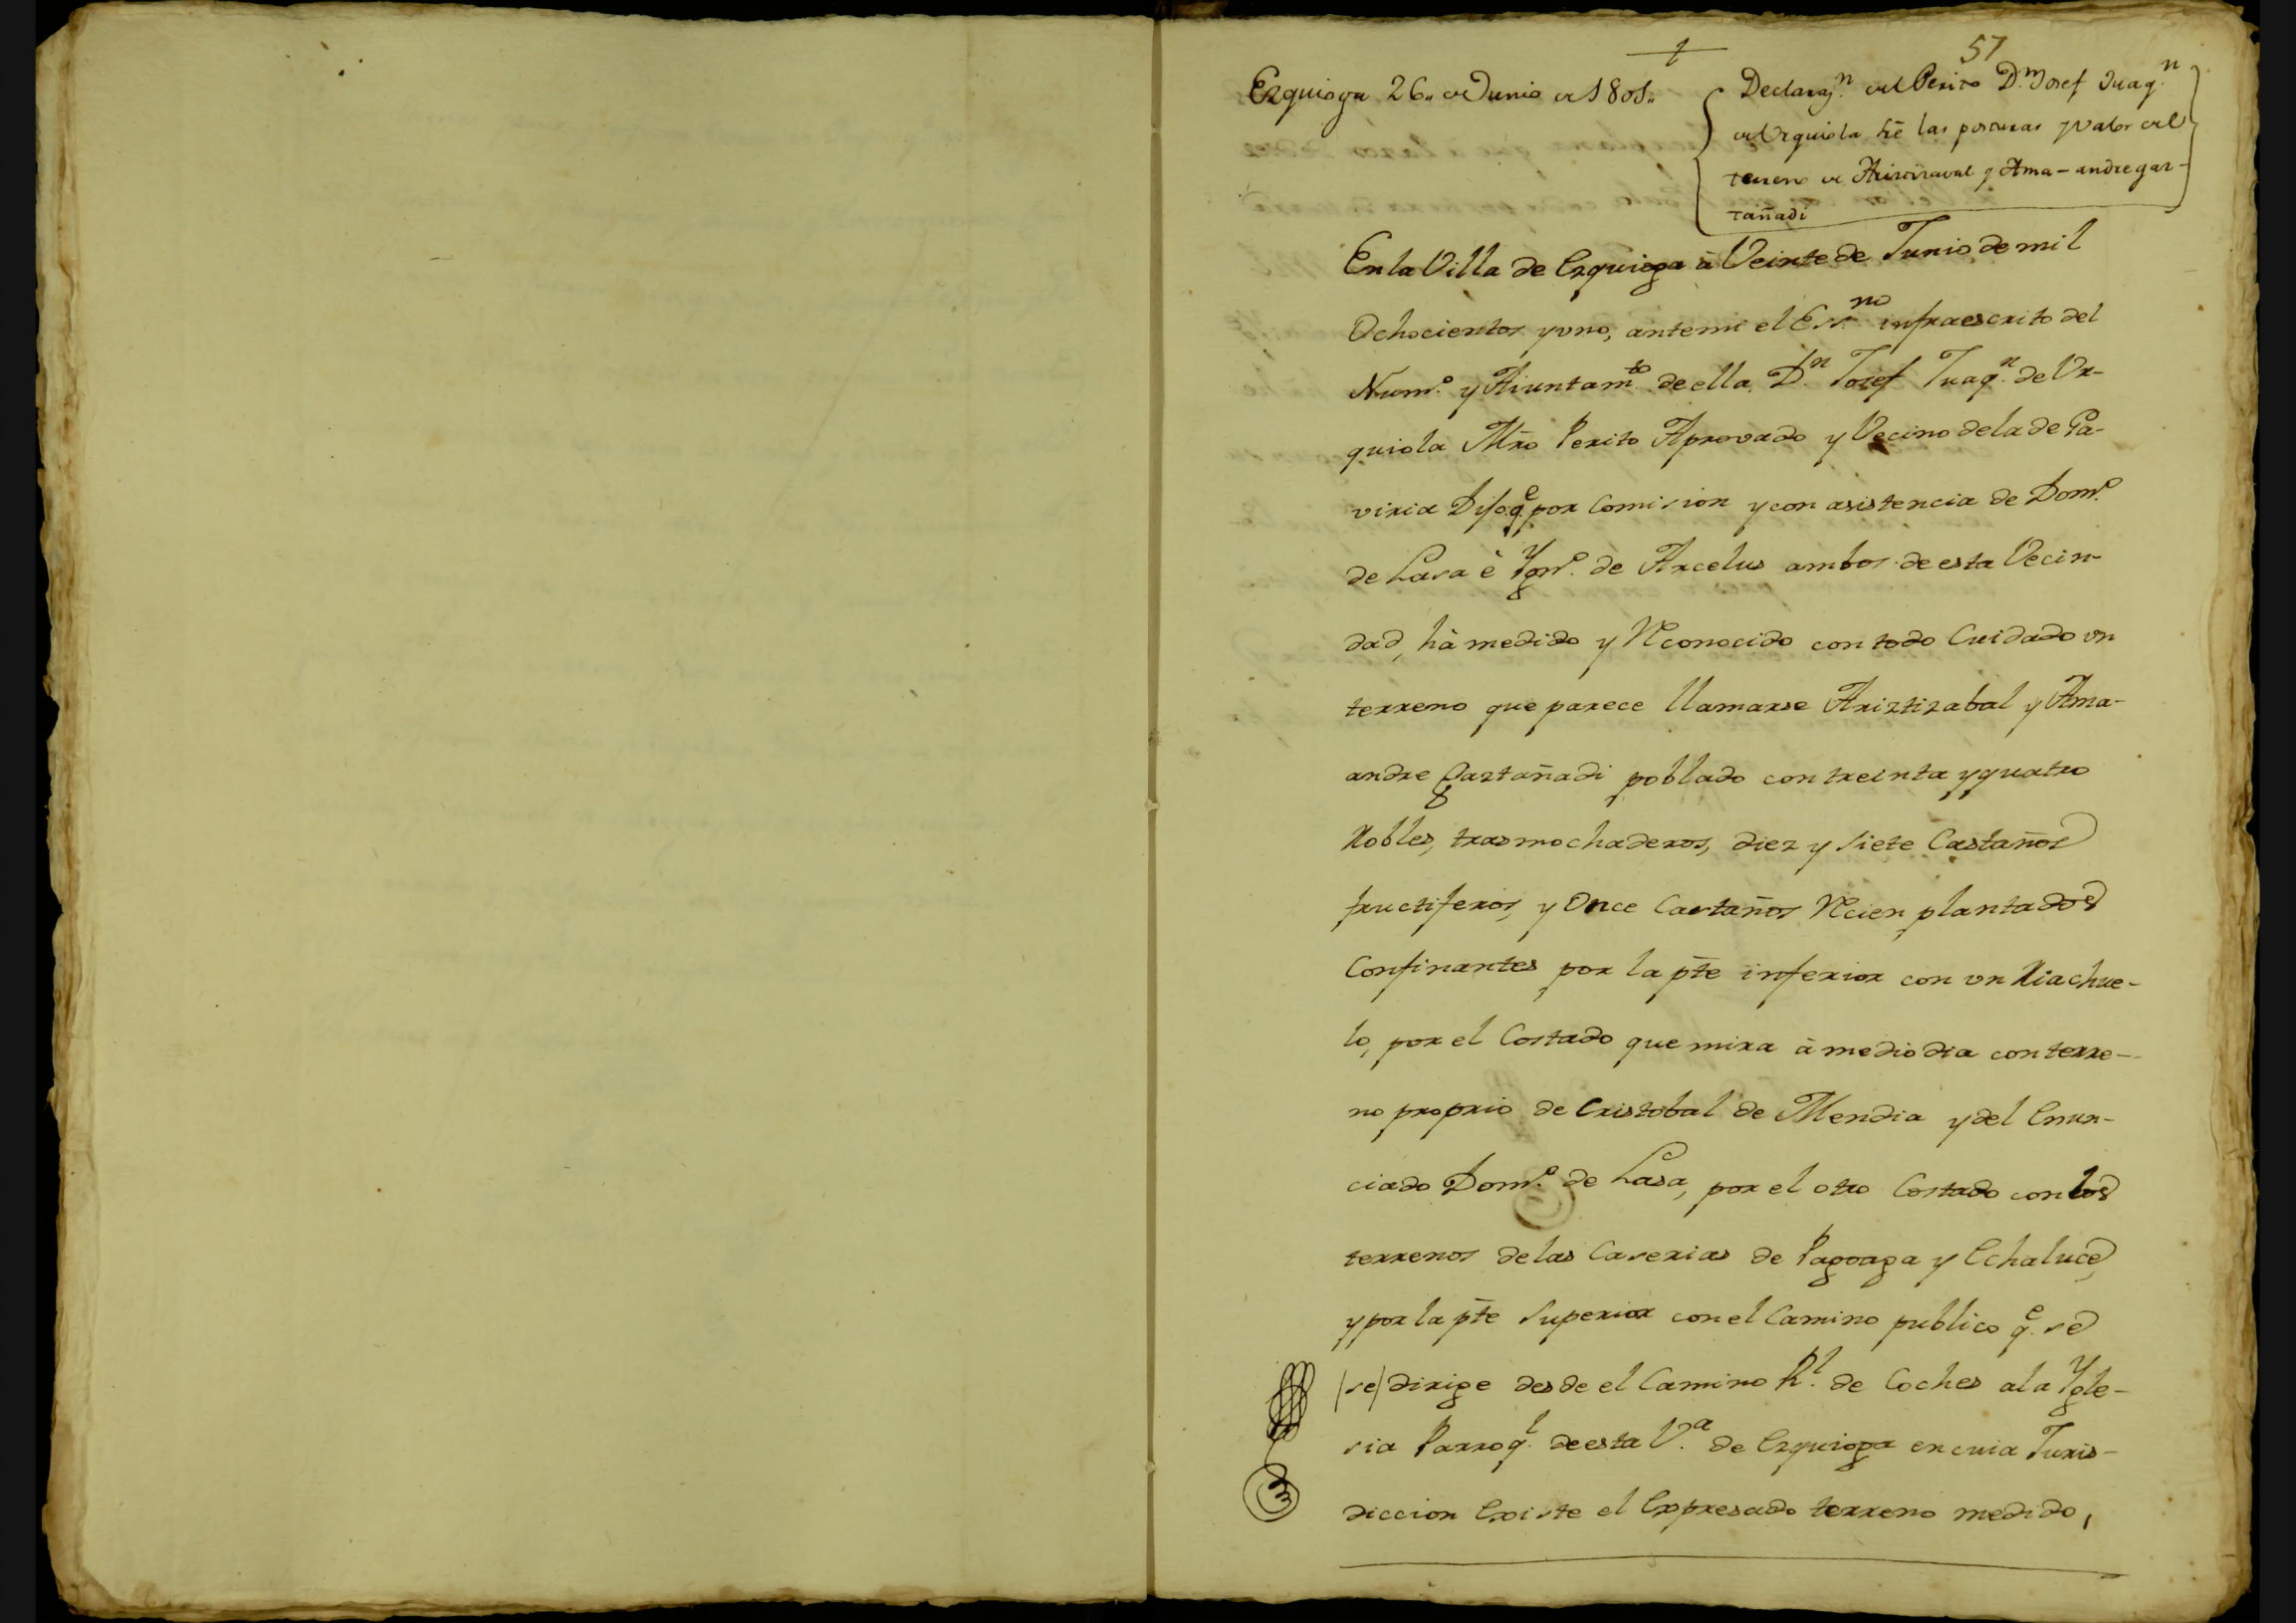 57
Ezquioga 26,, de Junio de 1801,,
Declaraz.n del Perito D.n Josef Juaq.n
de Urquiola sre las posturas y valor del
terreno de Ariztizaval y Ama-andregaz-
tañadi
En la Villa de Ezquioga à Veinte de Junio de mil
Ochocientos y uno, antemi el Ess.no infraescrito del
Num.o y Aiuntam.to de ella, D.n Josef Juaq.n de Ur-
quiola Mro Perito Aprovado y Vecino dela de Ga-
viria Dijo q.e por Comision y con asistencia de Dom.o
de Lasa è Ygn.o de Arcelus ambos de esta Vecin-
dad, hà medido y Reconocido con todo Cuidado vn
terreno que parece llamarse Ariztizabal y Ama-
andre Gaztañadi poblado con treinta y quatro
Robles, trasmochaderos, diez y siete Castaños
fructiferos, y Once Castaños Recien plantados
Confinantes por la pte inferior con vn Riachue-
lo, por el Costado que mira à medio dia con terre-
no proprio de Cristobal de Mendia y del Enun-
ciado Dom.o de Lasa, por el otro Costado con los
terrenos delas Caserias de Pagoaga y Echaluce,
y por la pte Superior con el Camino publico q.e se
(se) dirige desde el Camino R.l de Coches ala Ygle-
sia Parroq.l de esta V.a de Ezquioga en cuia Juris-
diccion Existe el Expresado terreno medido,